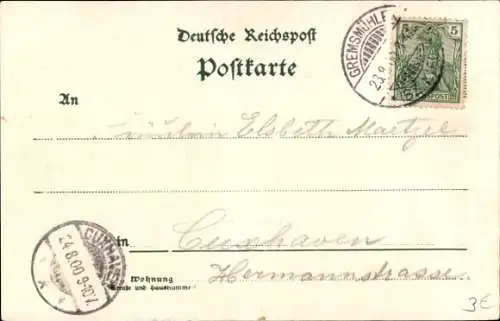 Deutsche Reichspost
Postkarte
GREMSMÜHLEN
23.8
5
An
Fräulein Elsbeth Maetzel
in Cuxhaven
CUXHAVEN
24.8.00 9-10V.
Wohnung
Hermannstrasse
(Straße und Hausnummer)
3€